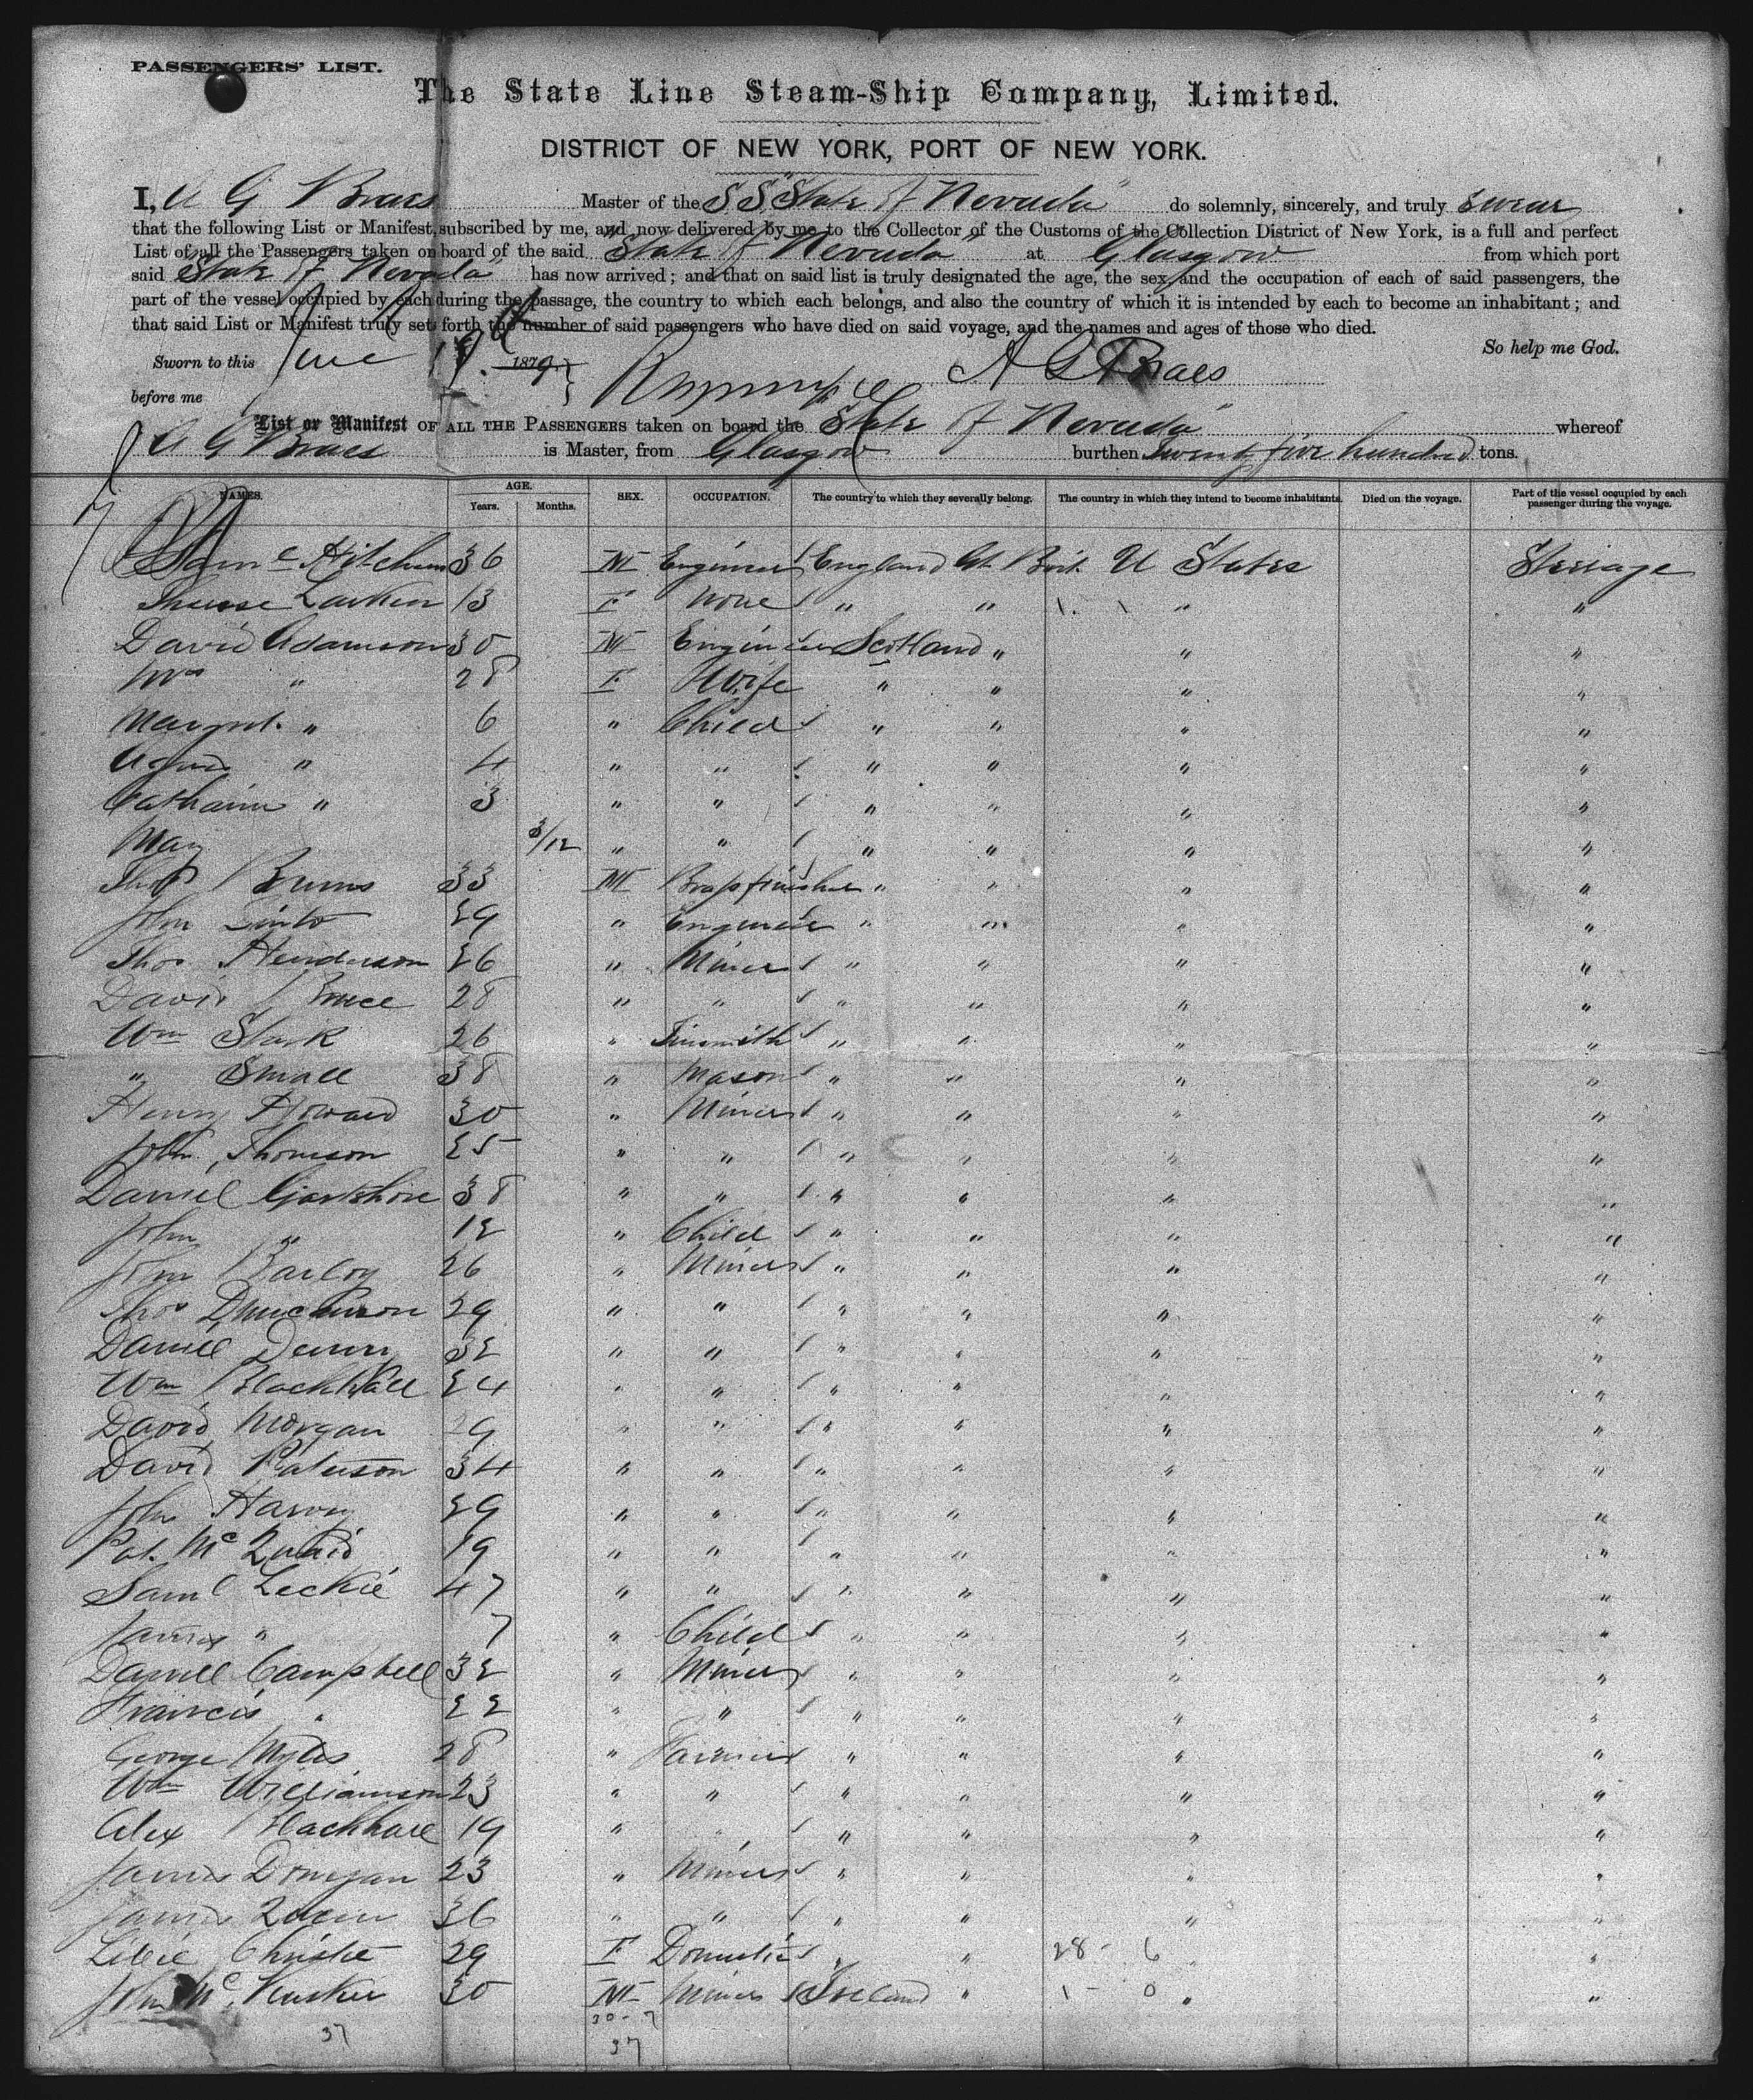 PASSENGERS' LIST.
The State Line Steam-Ship Company, Limited.
DISTRICT OF NEW YORK, PORT OF NEW YORK.
I, A G Braes Master of the SS "State of Nevada" do solemnly, sincerely, and truly swear
that the following List or Manifest, subscribed by me, and now delivered by me to the Collector of the Customs of the Collection District of New York, is a full and perfect
List of all the Passengers taken on board of the said "State of Nevada" at Glasgow from which port
said "State of Nevada" has now arrived; and that on said list is truly designated the age, the sex, and the occupation of each of said passengers, the
part of the vessel occupied by each during the passage, the country to which each belongs, and also the country of which it is intended by each to become an inhabitant; and
that said List or Manifest truly sets forth the number of said passengers who have died on said voyage, and the names and ages of those who died.
So help me God.
Sworn to this June 1879 A G Braes
before me
List or Manifest OF ALL THE PASSENGERS taken on board the "State of Nevada" whereof
A G Braes is Master, from Glasgow burthen Twenty five hundred tons.
NAMES. AGE. Years. Months. SEX. OCCUPATION. The country to which they severally belong. The country in which they intend to become inhabitants. Died on the voyage. Part of the vessel occupied by each passenger during the voyage.
36 M Engineer England Gt. Brit. U States Steerage
Larkin 13 F None " " " "
David Adamson 30 M Engineer Scotland " " "
Mrs " 28 F Wife " " " "
Margret " 6 " Child " " " "
Agnes " 4 " " " " " "
Catharine " 3 " " " " " "
May 3/12 " " " " " "
Thos Burns 33 M Brassfinisher " " " "
John 29 " Engineer " " " "
Thos Henderson 26 " Miner " " " "
David Bruce 28 " " " " " "
Wm Stark 26 " Tinsmith " " " "
" Small 38 " Mason " " " "
Henry Howard 30 " Miner " " " "
John Thomson 25 " " " " " "
Daniel Gartshore 38 " " " " " "
John " 12 " Child " " " "
John 26 " Miner " " " "
Thos 29 " " " " " "
Daniel Dunn 32 " " " " " "
Wm Blackhall 24 " " " " " "
David Morgan 29 " " " " " "
David Paterson 34 " " " " " "
John Harvey 29 " " " " " "
Pat. McQuaid 19 " " " " " "
Saml Leckie 47 " " " " " "
James " 7 " Child " " " "
Daniel Campbell 32 " Miner " " " "
Francis " 22 " " " " " "
George Myles 28 " Farmer " " " "
Wm Williamson 23 " " " " " "
Alex Blackhall 19 " " " " " "
James Donegan 23 " Miner " " " "
James Quin 36 " " " " " "
Lillie Christie 29 F Domestic " " 28 - 6 " "
John Mc 30 M Miner Ireland " 1 - 0 " "
30 - 7
37 37